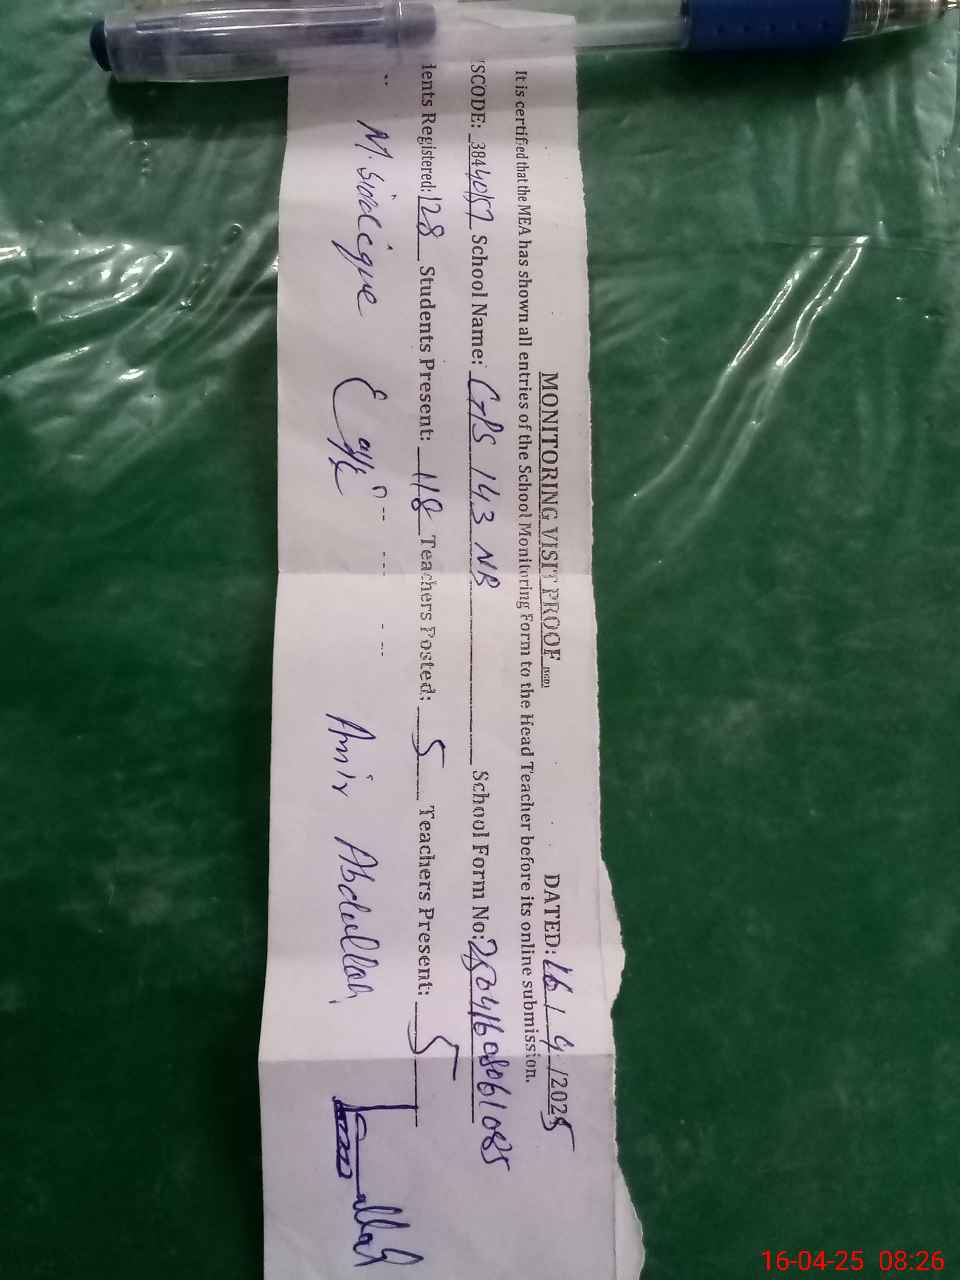 MONITORING VISIT PROOF (SGD) DATED: 16/4/2025
It is certified that the MEA has shown all entries of the School Monitoring Form to the Head Teacher before its online submission.
SCODE: 38440157 School Name: GPS 143 NB School Form No: 25041608061085
dents Registered: 128 Students Present: 118 Teachers Posted: 5 Teachers Present: 5
M. Siddique Amir Abdullah
16-04-25 08:26